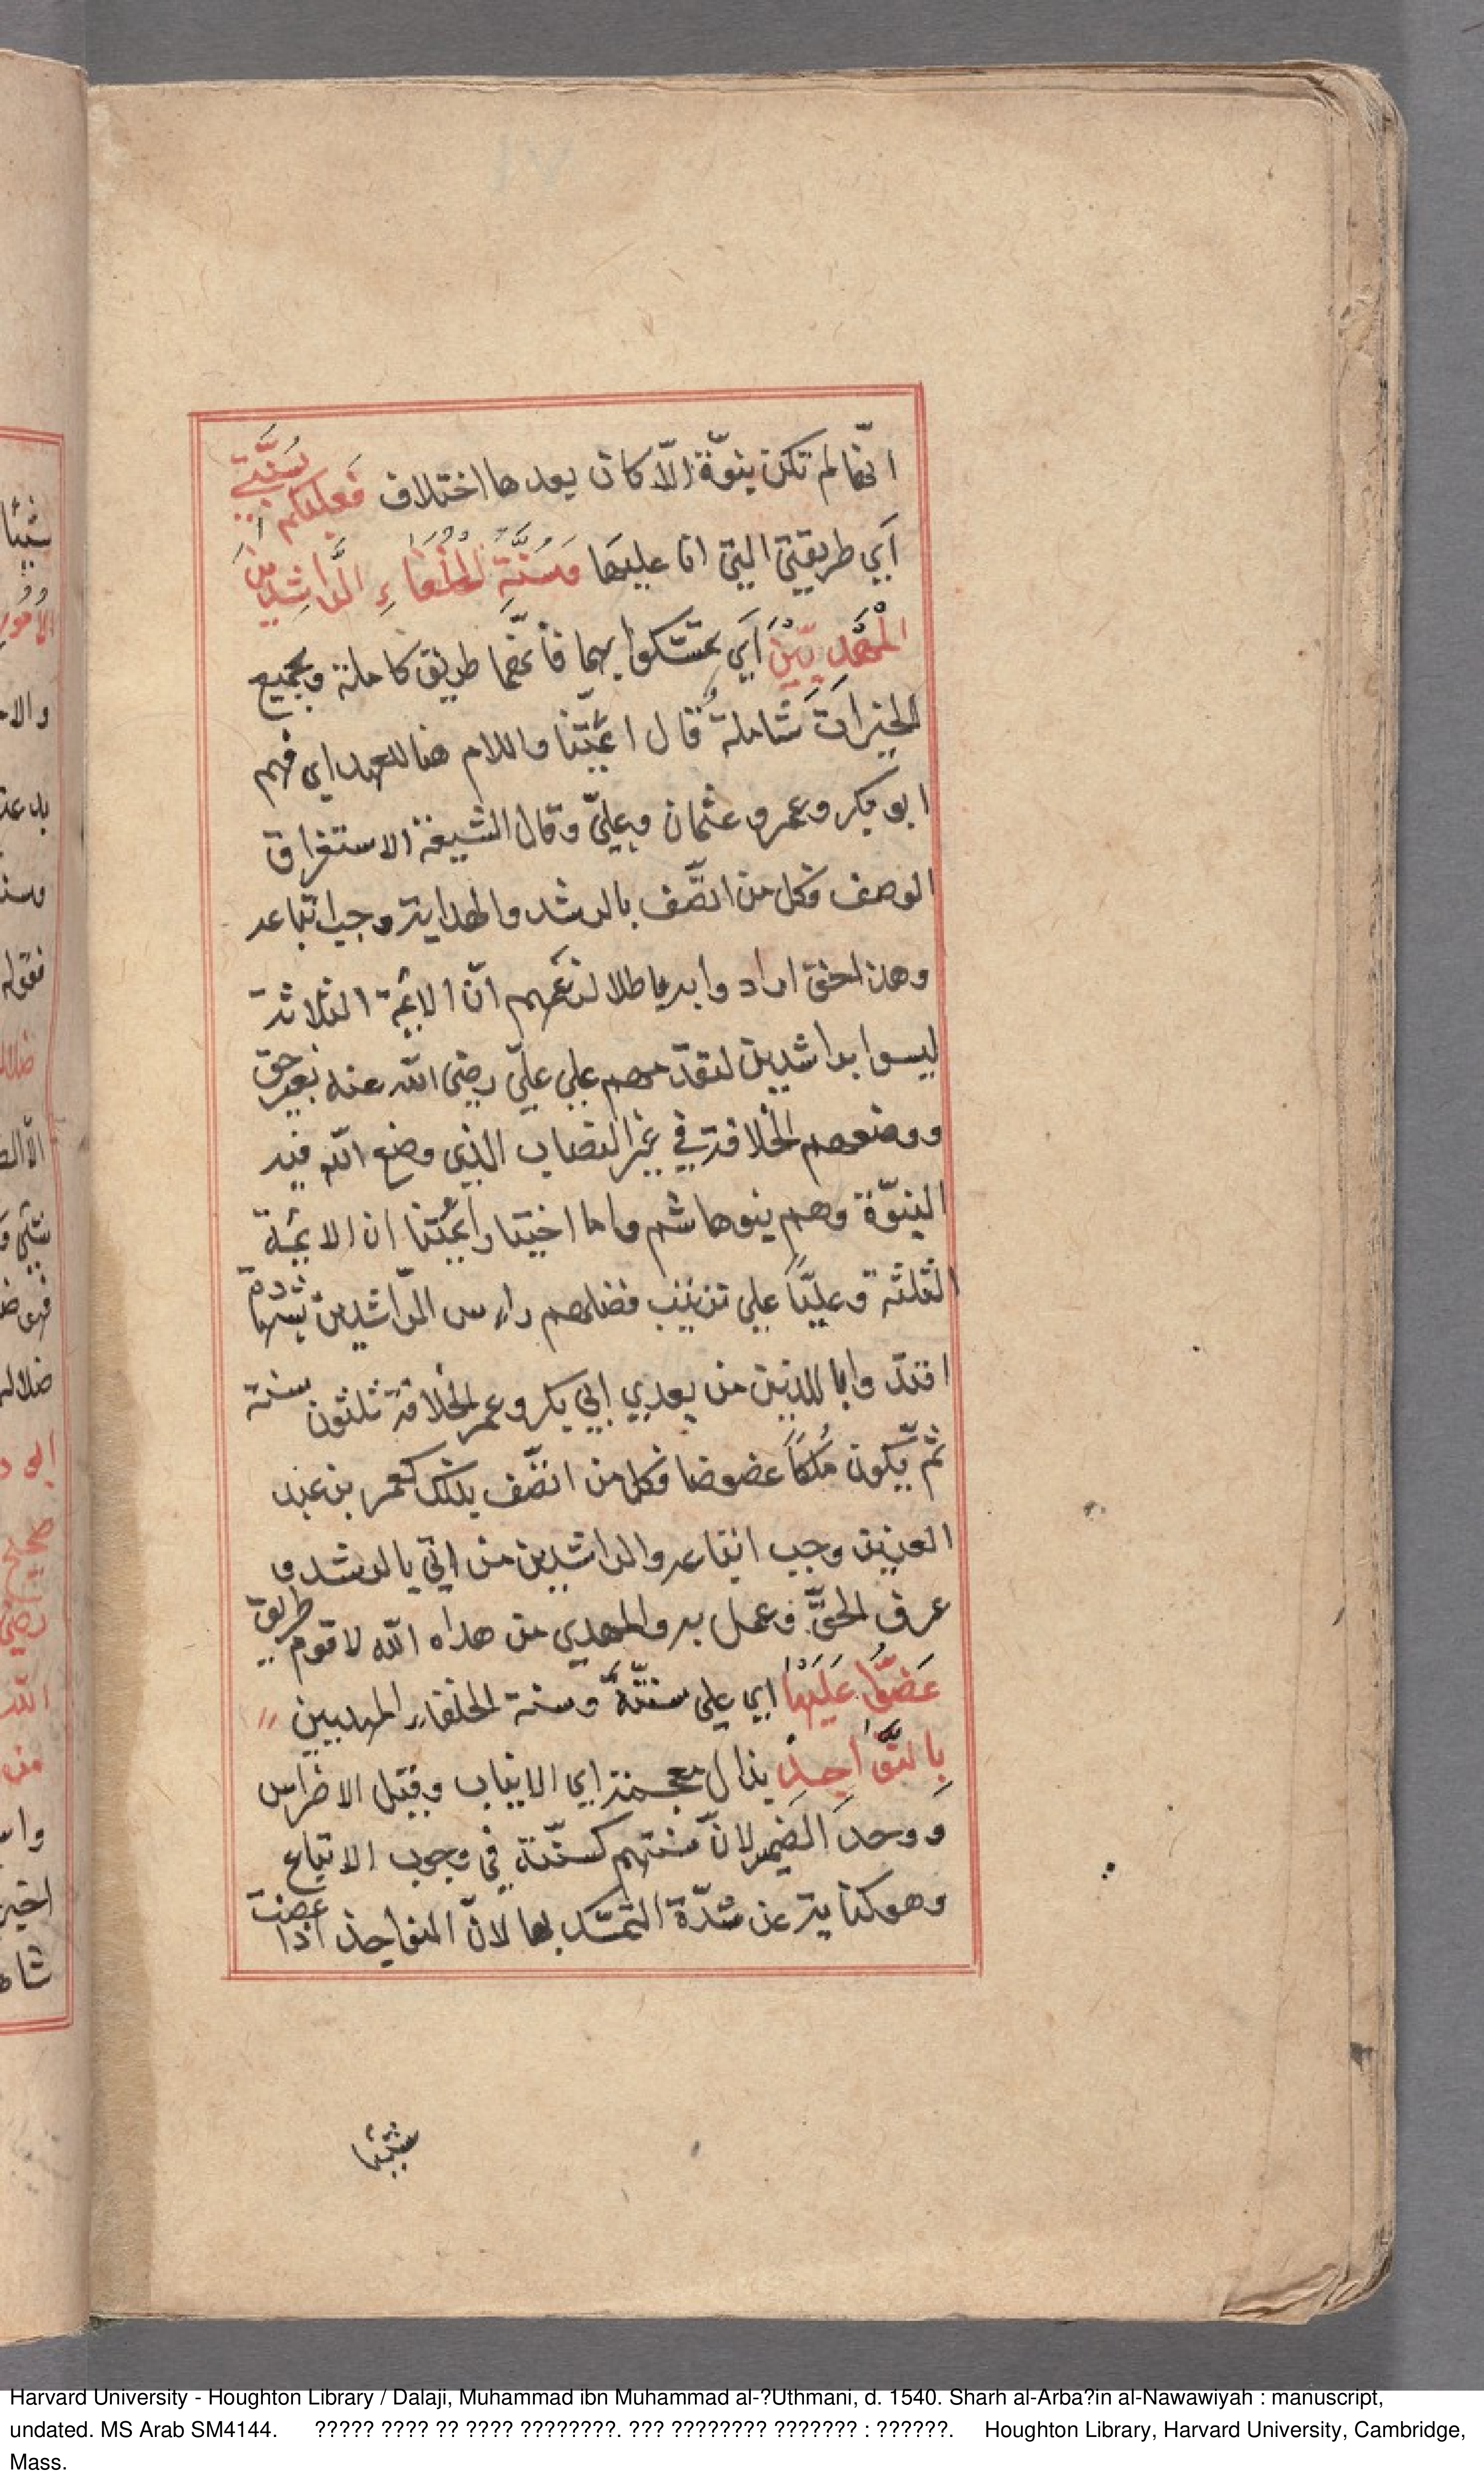 انّها لم تكن نبوّة الّا كان بعدها اختلاف فَعليكم بسُنَّتِي
أي طريقتي التي انا عليها وَسُنَّةِ الخُلَفَاءِ الرَّاشِدِينَ
المَهْدِيّينَ أي تمسّكوا بهما فانّهما طريق كاملة وبجميع
الخيرات شاملة قال ائمّتنا واللام هنا للعهد اي فهم
ابو بكر وعمر وعثمان وعليّ وقال الشيعة الاستغراق
الوصف فكل من اتّصف بالرشد والهداية وجب اتباعه
وهذا حق اراد وابه باطلا لزعمهم انّ الائمة الثلاثة
ليسوا براشدين لتقدّمهم علي عليّ رضى الله عنه بغير حق
ووضعهم الخلافة في غير النصاب الذي وضع الله فيه
النبوّة وهم بنوهاشم واما اختيار ائمّتنا ان الائمة
الثلثة وعليّاً علي ترتيب فضلهم راس الرّاشدين بشهادة
اقتدوا بالذين من بعدي ابي بكر وعمر الخلافة ثلثون سنة
ثمّ يكون مُلكاً عضوضا فكل من اتّصف بذلك كعمر بن عبد
العزيز وجب اتباعه والراشدين من اتي بالرشد و
عرف الحقّ وعمل به والمهدي من هداه الله لاقوم طريق
عَضُّوا عَلَيْهَا اي علي سنتّه وسنة الخلفاء المهديين
بِالنَّوَاجِذِ بذال معجمة اي الانياب وقيل الاضراس
ووحد الضمير لانّ سنتهم كسنّته في وجوب الاتباع
وهو كناية عن شدّة التمسّك بها لانّ النواجذ اذا عضت
شيئا
Harvard University - Houghton Library / Dalaji, Muhammad ibn Muhammad al-?Uthmani, d. 1540. Sharh al-Arba?in al-Nawawiyah : manuscript,
undated. MS Arab SM4144. ????? ???? ?? ???? ????????. ??? ???????? ??????? : ??????. Houghton Library, Harvard University, Cambridge,
Mass.